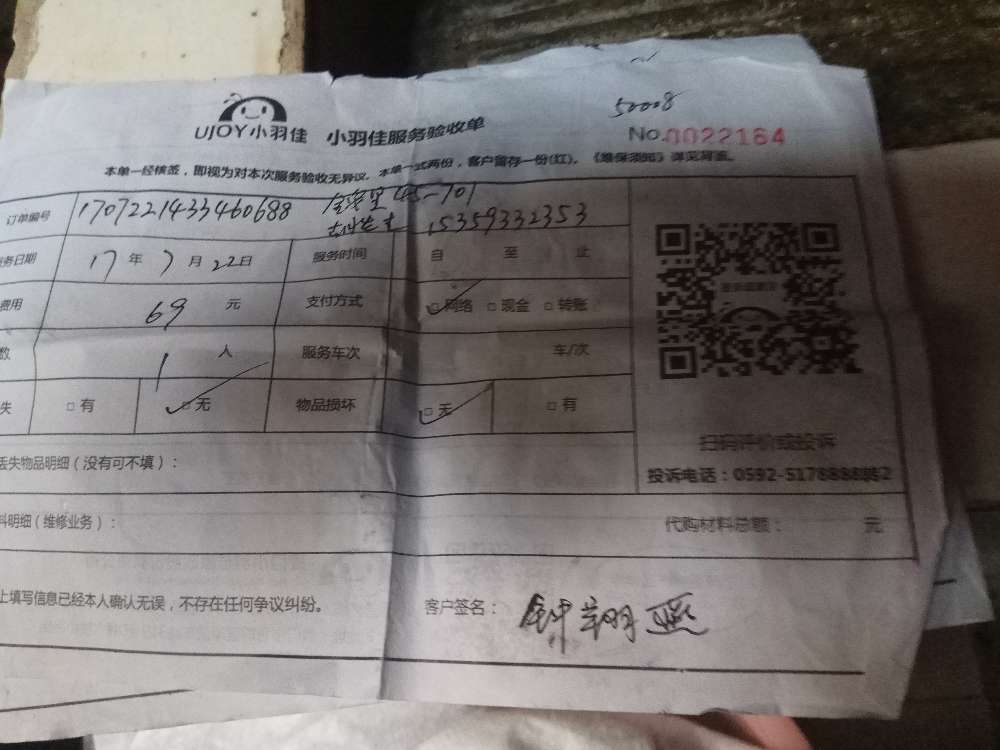 50008
UJOY小羽佳 小羽佳服务验收单 No.0022164
本单一经核签，即视为对本次服务验收无异议。本单一式两份，客户留存一份(红)。《维保须知》详见背面。
订单编号 1707221433460688 45-701
15359332353
务日期 17年7月22日 服务时间 自 至 止
费用 69 元 支付方式 □网络 □现金 □转账
数 1 人 服务车次 车/次
失 □有 □无 物品损坏 □无 □有
扫码评价或投诉
丢失物品明细（没有可不填）： 投诉电话：0592-5178888转2
料明细（维修业务）： 代购材料总额： 元
上填写信息已经本人确认无误，不存在任何争议纠纷。 客户签名：